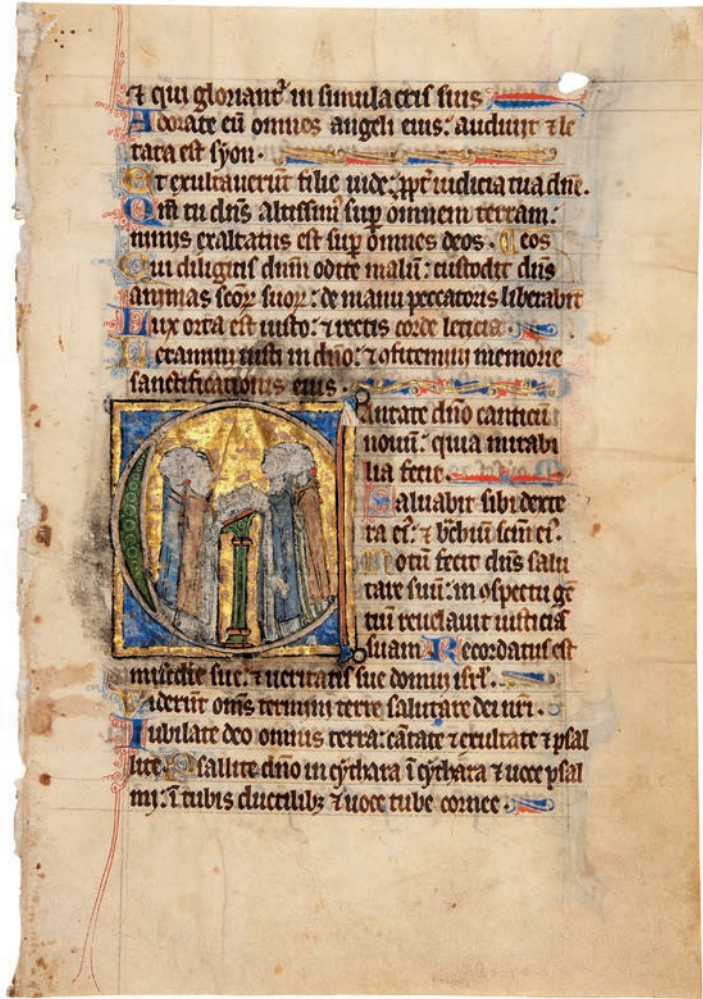 ⁊ qui gloriant᷑ in simulacris suis
Adorate eū omnes angeli eius: audiuit ⁊ le
tata est syon.
Et exultauerūt filie iude: ꝓpt̄ iudicia tua dn̄e.
Qm̄ tu dn̄s altissim᷒ suꝑ omnem terram:
nimis exaltatus est suꝑ omnes deos.
Qui diligitis dnm̄ odite malū: custodit dn̄s
animas scōꝝ suoꝝ: de manu peccatoris liberabit eos
Lux orta est iusto: ⁊ rectis corde leticia.
Letamini iusti in dn̄o: ⁊ ꝯfitemini memorie
sanctificationis eius.
Cantate dn̄o canticū
nouū: quia mirabi
lia fecit.
Saluabit sibi dexte
ra ei᷒: ⁊ bͣchiū scm̄ ei᷒.
Notū fecit dn̄s salu
tare suū: in ꝯspectu gē
tiū reuelauit iusticiā
suam Recordatus est
mīe sue: ⁊ ueritatis sue domui isrl̄.
Viderūt om̄s termini terre salutare dei nr̄i.
Iubilate deo omnis terra: cātate ⁊ exultate ⁊ psal
lite. Psallite dn̄o in cythara ī cythara ⁊ uoce psal
mi: ī tubis ductilibꝫ ⁊ uoce tube cornee.